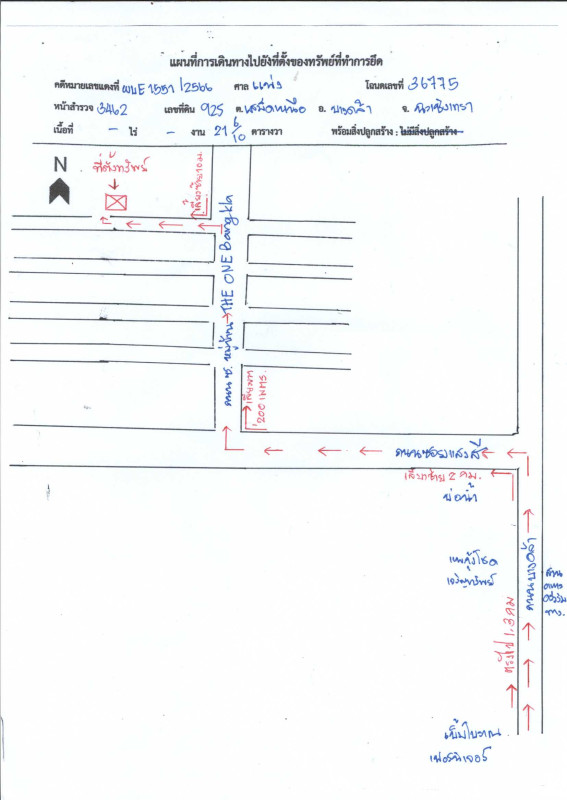 แผนที่การเดินทางไปยังที่ตั้งของทรัพย์ที่ทำการยึด
คดีหมายเลขแดงที่ ผบE 1551 /2566 ศาล แพ่ง โฉนดเลขที่ 36775
หน้าสำรวจ 3462 เลขที่ดิน 925 ต.เสม็ดเหนือ อ. บางคล้า จ. ฉะเชิงเทรา
เนื้อที่ - ไร่ - งาน 21 6/10 ตารางวา พร้อมสิ่งปลูกสร้าง : ไม่มีสิ่งปลูกสร้าง
N
ที่ตั้งทรัพย์
ถนนซ. หมู่บ้าน THE ONE Bangkla
เลี้ยวขวา
200 เมตร.
ถนนซอยแสงสี
เลี้ยวซ้าย 2 กม.
บ่อน้ำ
ถนนบางคล้า
ตรงไป 1.3 กม
เฟอร์นิเจอร์